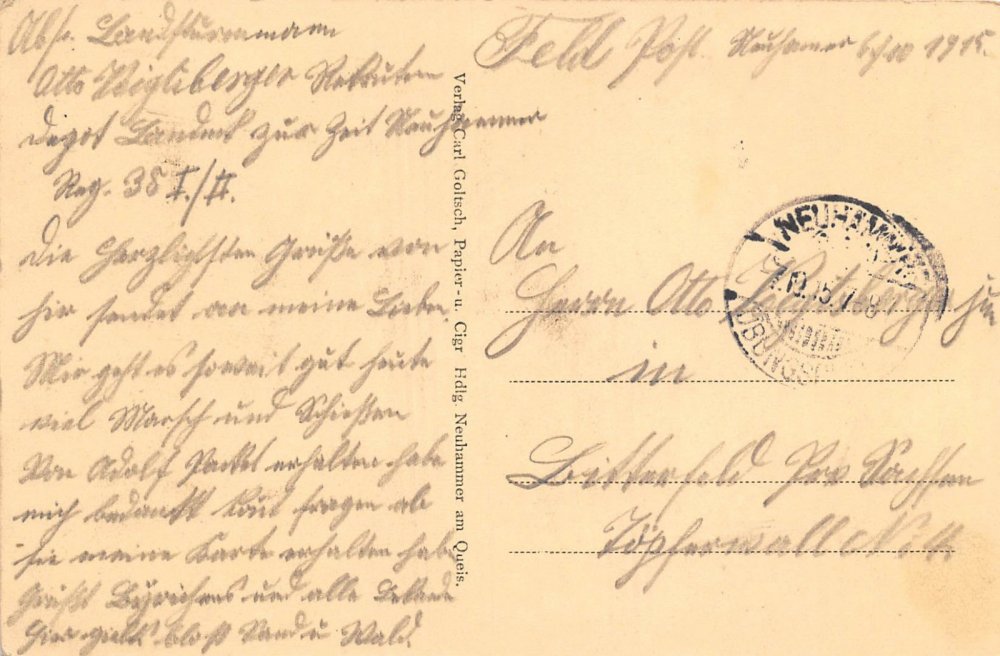 Abs. Landsturmmann
Otto Voigtsberger Rekruten
Depot Landeck zur Zeit Neuhammer
Reg. 38 I./II.
Die Herzlichsten Grüße von
hir sendet an meine Lieben.
Mir geht es soweit gut heute
viel Marsch und Schießen
Von Adolf Packet erhalten habe
mich bedankt
sie meine Karte erhalten hab
Grüßt und alle Bekante
Hier giebt bloß Sand u Wald.
Verlag Carl Goltsch, Papier- u. Cigr Hdlg. Neuhammer am Queis.
Feld Post. Neuhamer 1915.
NEUHAMMER
ÜBUNGS
An
Herrn Otto Voigtsberger jun
in
Bitterfeld Prv Sachsen
Töpferwall No 14